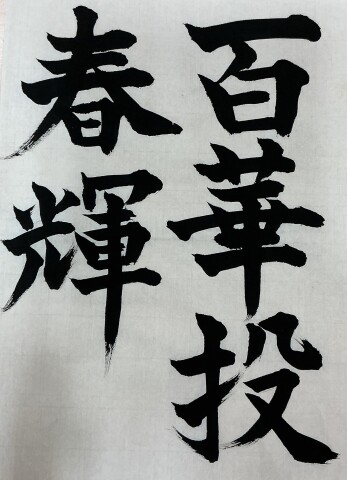 百華投
春輝